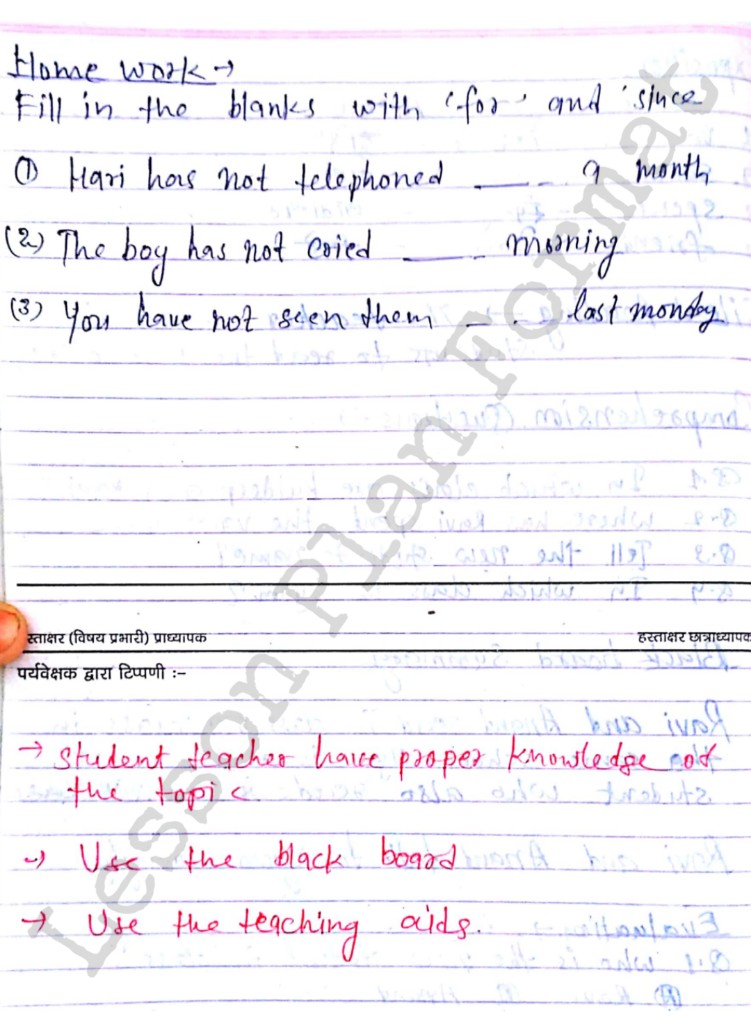 Home work →
Fill in the blanks with 'for' and 'since
① Hari has not telephoned ___ a month
(2) The boy has not cried ___ morning
(3) You have not seen them ___ last monday
स्ताक्षर (विषय प्रभारी) प्राध्यापक हस्ताक्षर छात्राध्यापक
पर्यवेक्षक द्वारा टिप्पणी :-
→ Student teacher have proper knowledge of
the topic
→ Use the black board
→ Use the teaching aids.
Lesson Plan Format